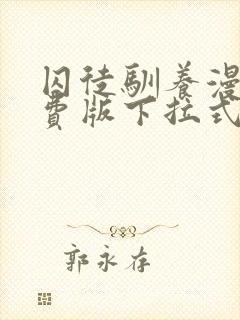 囚徒驯养漫
费版下拉式
郭永存